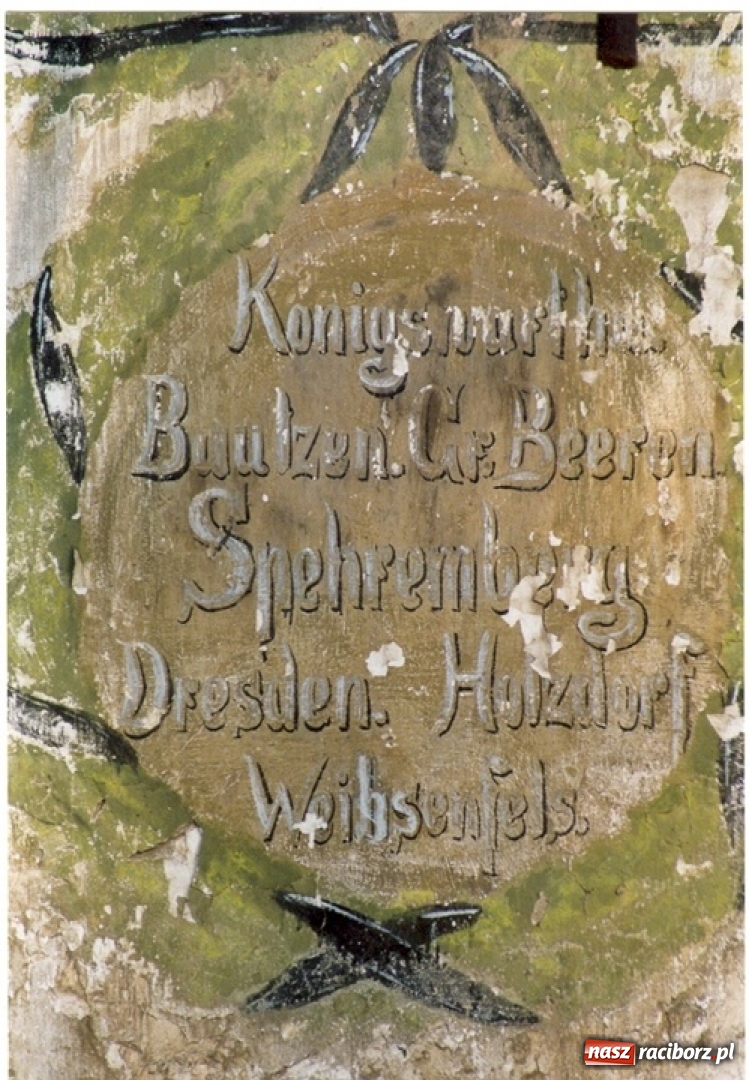 Königswartha.
Bautzen. Gr. Beeren.
Spehremberg
Dresden. Holzdorf
Weihsenfels.
nasz raciborz pl